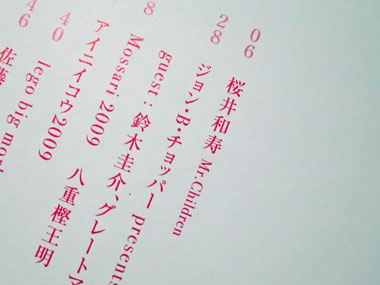 06 桜井和寿 Mr.Children
28 ジョン・B・チョッパー presents
8 guest：鈴木圭介、グレートマ
Mossari 2009 八重樫王明
アイニイコウ2009
40 lego big mor
46 佐藤